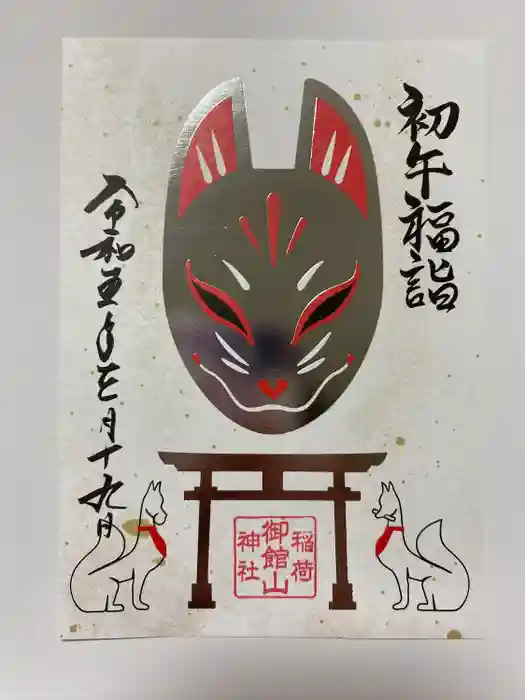 初午福詣
令和五年三月十九日
御館山
稲荷
神社